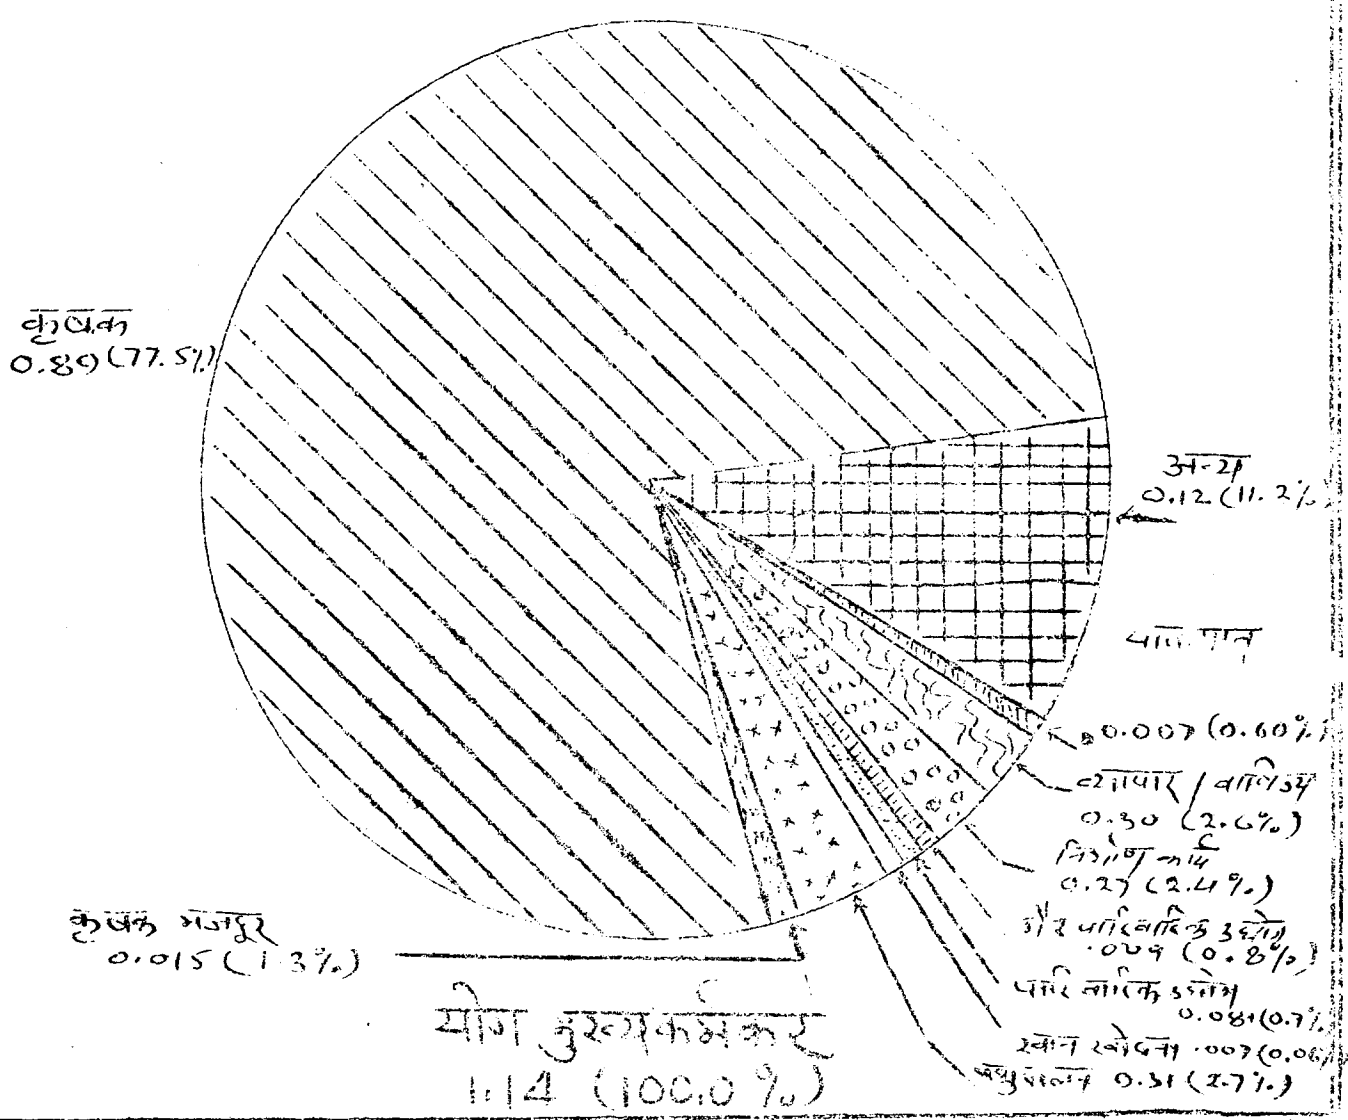 कृषक
0.89 (77.5%)
अन्य
0.12 (11.2%)
0.007 (0.60%)
व्यापार / वाणिज्य
0.30 (2.6%)
निर्माण कार्य
0.27 (2.4%)
गैर पारिवारिक उद्योग
.009 (0.8%)
पारिवारिक उद्योग
(0.7%
खान खोदना .007 (0.06
0.31 (2.7%)
कृषक मजदूर
0.015 (1.3%)
योग मुख्यकर्मकर
1.14 (100.0%)